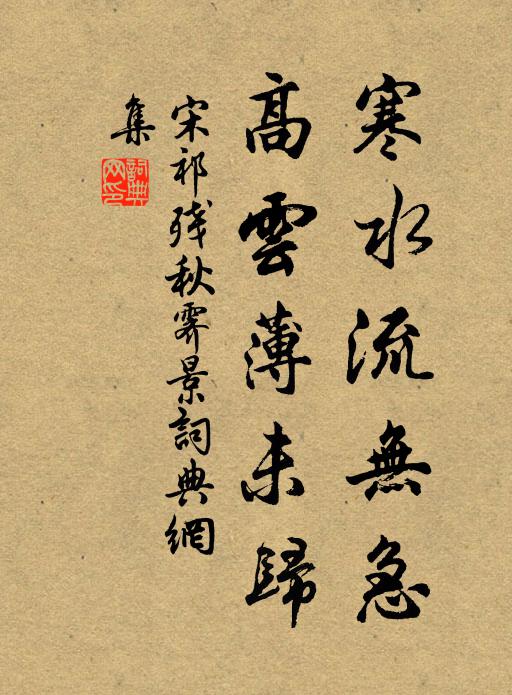 寒水流無急
高雲薄未歸
宋祁殘秋霽景詞典網
集
詞典
网印